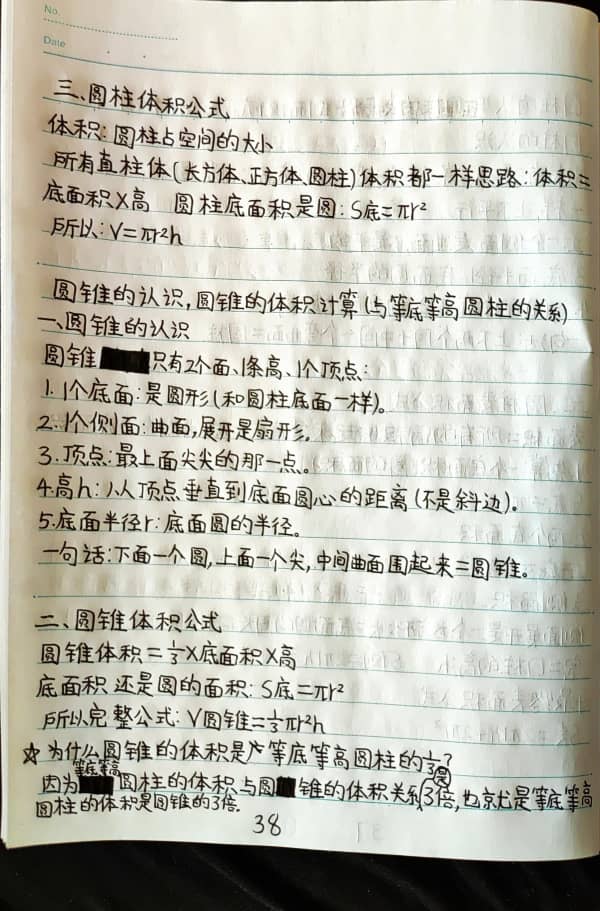 No.
Date
三、圆柱体积公式
体积:圆柱占空间的大小
所有直柱体(长方体、正方体、圆柱)体积都一样思路:体积=
底面积×高 圆柱底面积是圆:S底=πr²
所以:V=πr²h
圆锥的认识,圆锥的体积计算(与等底等高圆柱的关系)
一、圆锥的认识
圆锥只有2个面、1条高、1个顶点:
1.1个底面:是圆形(和圆柱底面一样)。
2.1个侧面:曲面,展开是扇形。
3.顶点:最上面尖尖的那一点。
4.高h:从顶点垂直到底面圆心的距离(不是斜边)。
5.底面半径r:底面圆的半径。
一句话:下面一个圆,上面一个尖,中间曲面围起来=圆锥。
二、圆锥体积公式
圆锥体积=1/3×底面积×高
底面积还是圆的面积:S底=πr²
所以完整公式:V圆锥=1/3πr²h
☆为什么圆锥的体积是等底等高圆柱的1/3?
因为等底等高圆柱的体积与圆锥的体积关系是3倍,也就是等底等高
圆柱的体积是圆锥的3倍.
38